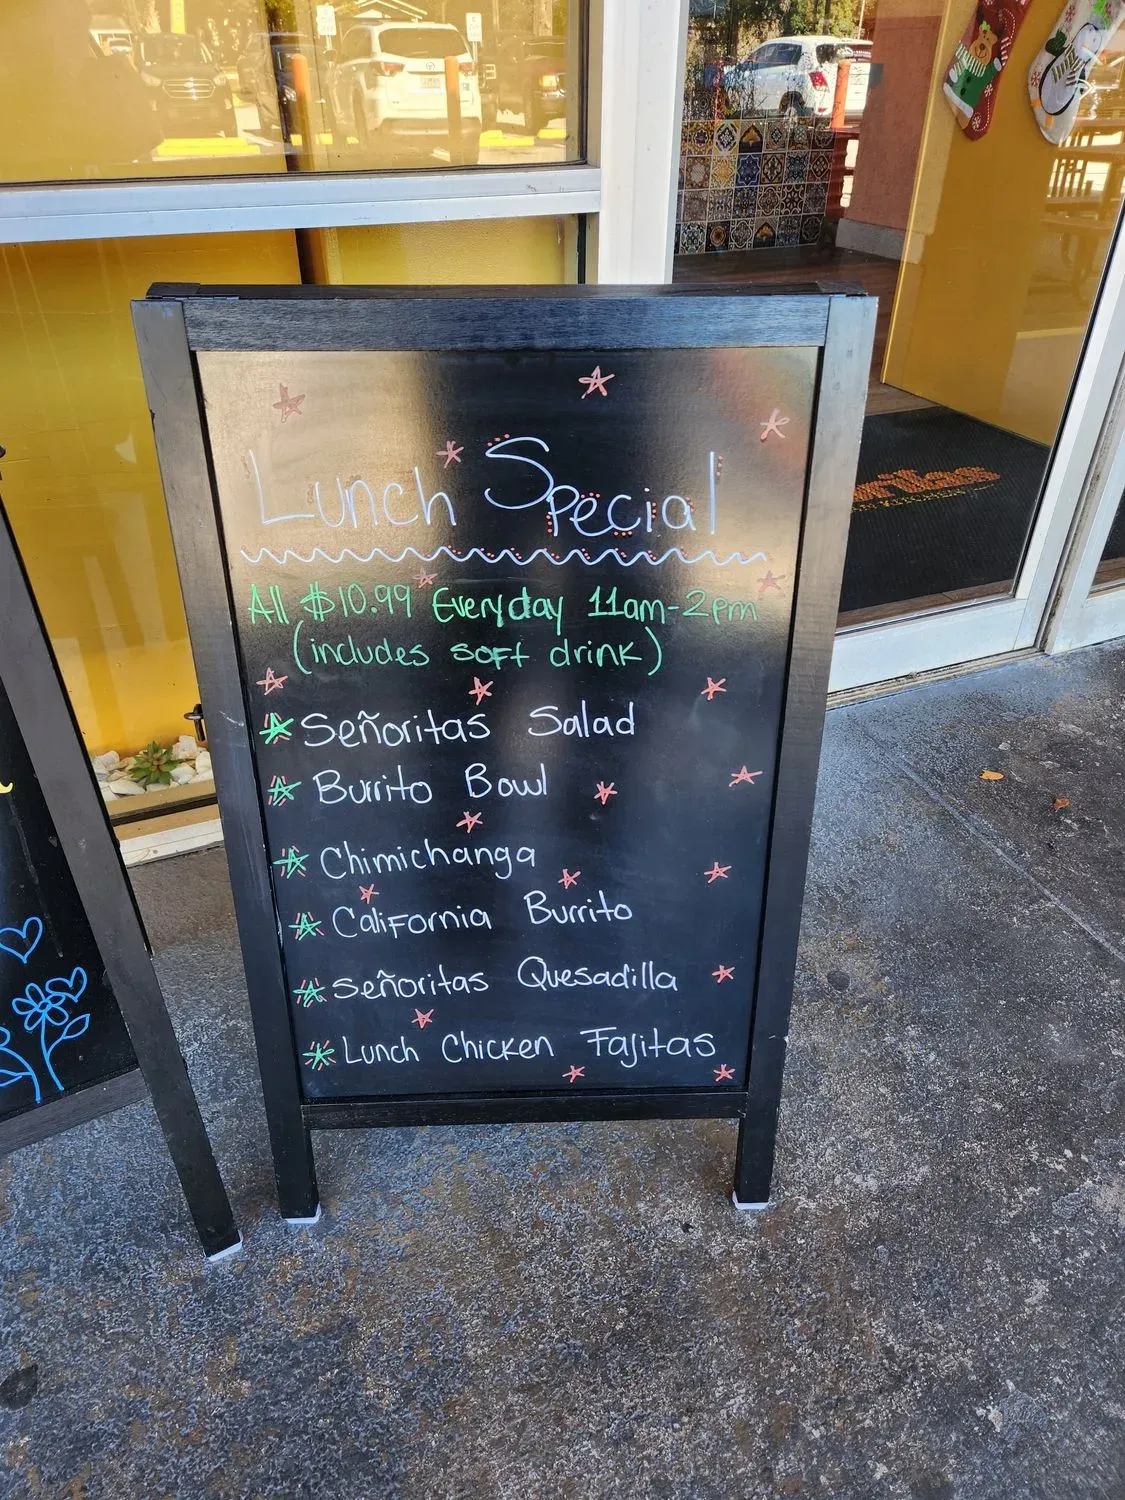 Lunch Special
All $10.99 Everyday 11am-2pm
(includes soft drink)
Señoritas Salad
Burrito Bowl
Chimichanga
California Burrito
Señoritas Quesadilla
Lunch Chicken Fajitas